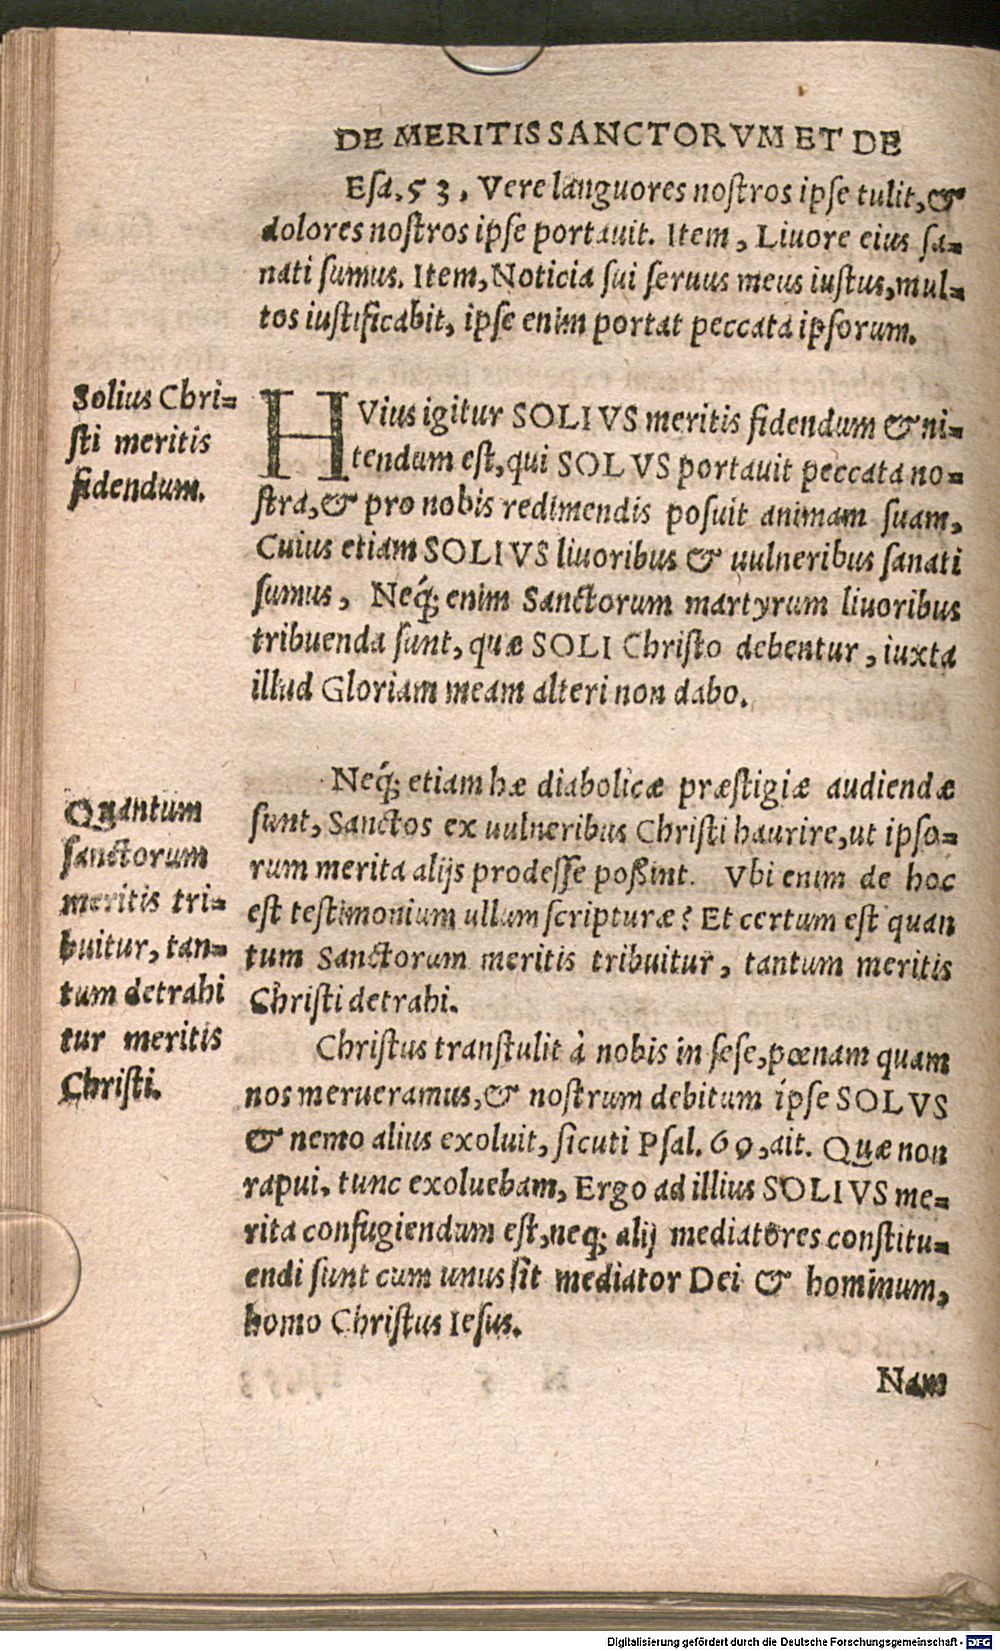 DE MERITIS SANCTORVM ET DE
Esa. 53, Vere languores nostros ipse tulit, &
dolores nostros ipse portauit. Item, Liuore eius sa-
nati sumus. Item, Noticia sui seruus meus iustus, mul-
tos iustificabit, ipse enim portat peccata ipsorum.
Solius Chri-
sti meritis
fidendum.
HVius igitur SOLIVS meritis fidendum & ni-
tendum est, qui SOLVS portauit peccata no-
stra, & pro nobis redimendis posuit animam suam,
Cuius etiam SOLIVS liuoribus & uulneribus sanati
sumus, Neq́; enim Sanctorum martyrum liuoribus
tribuenda sunt, quæ SOLI Christo debentur, iuxta
illud Gloriam meam alteri non dabo.
Quantum
sanctorum
meritis tri-
buitur, tan-
tum detrahi
tur meritis
Christi.
Neq́; etiam hæ diabolicæ præstigiæ audiendæ
sunt, Sanctos ex uulneribus Christi haurire, ut ipso-
rum merita alijs prodesse poßint. Vbi enim de hoc
est testimonium ullum scripturæ? Et certum est quan
tum Sanctorum meritis tribuitur, tantum meritis
Christi detrahi.
Christus transtulit à nobis in sese, pœnam quam
nos merueramus, & nostrum debitum ipse SOLVS
& nemo alius exoluit, sicuti Psal. 69, ait. Quæ non
rapui, tunc exoluebam, Ergo ad illius SOLIVS me-
rita confugiendum est, neq; alij mediatores constitu-
endi sunt cum unus sit mediator Dei & hominum,
homo Christus Iesus.
Nam
Digitalisierung gefördert durch die Deutsche Forschungsgemeinschaft - DFG